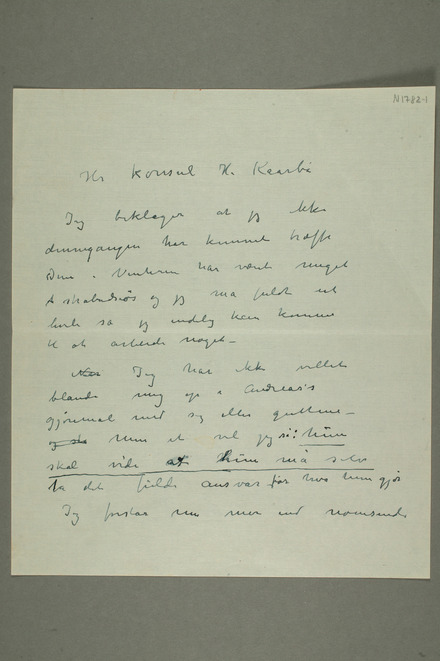 N1782-1
Hr Konsul H. Kaarbø
Jeg beklager at jeg ikke
dennegangen har kunnet træffe
Dem. Vinteren har været meget
og jeg må fuldt ud
så jeg endelig kan komme
til at arbeide noget –
Jeg har ikke villet
blande mig op i Andreas's
gjøremål med sig eller guttene –
men et vil jeg si: hun
skal vide at hun må selv
ta det fulde ansvar for hva hun gjør
Jeg forstår nu mer end